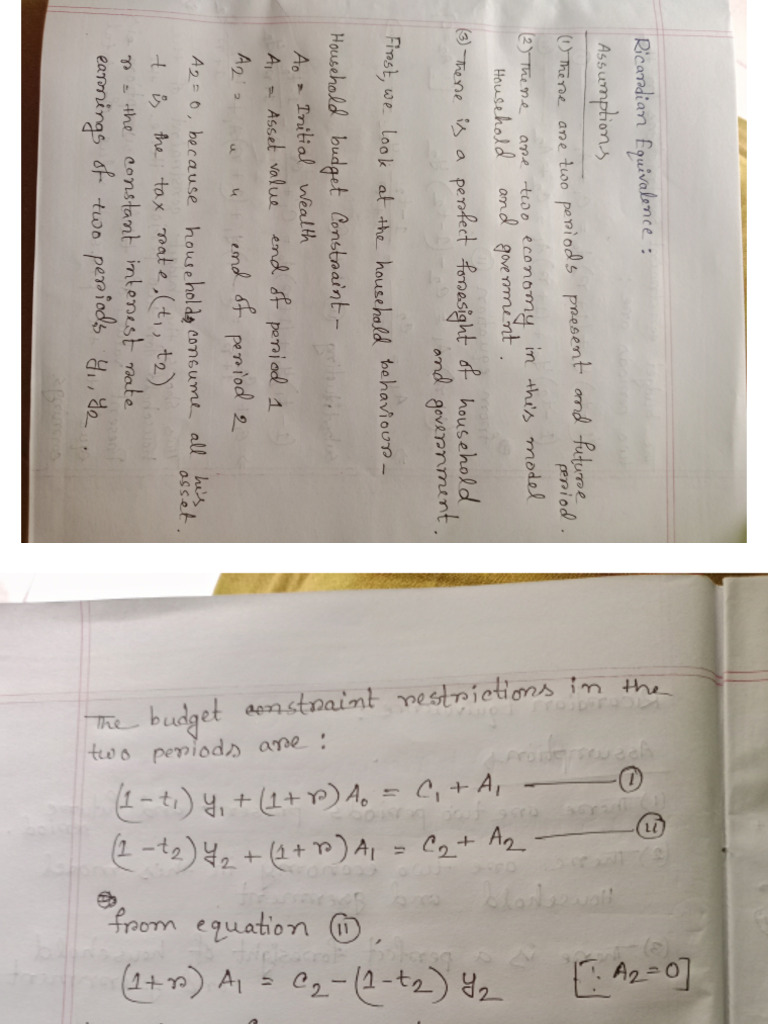 Ricardian Equivalence :
Assumptions
(1) There are two periods present and future
period.
(2) There are two economy in this model
Household and goverment.
(3) There is a perfect foresight of household
and government.
First, we look at the household behaviour-
Household budget Constraint-
A₀ = Initial wealth
A₁ = Asset value end of period 1
A₂ = " " end of period 2
A₂ = 0, because households consume all his
asset.
t is the tax rate, (t₁, t₂)
r = the constant interest rate
earnings of two periods y₁, y₂.
The budget constraint restrictions in the
two periods are :
(1-t₁) y₁ + (1+r) A₀ = C₁ + A₁ —— (i)
(1-t₂) y₂ + (1+r) A₁ = C₂ + A₂ —— (ii)
from equation (ii),
(1+r) A₁ = C₂ - (1-t₂) y₂ [∵ A₂=0]